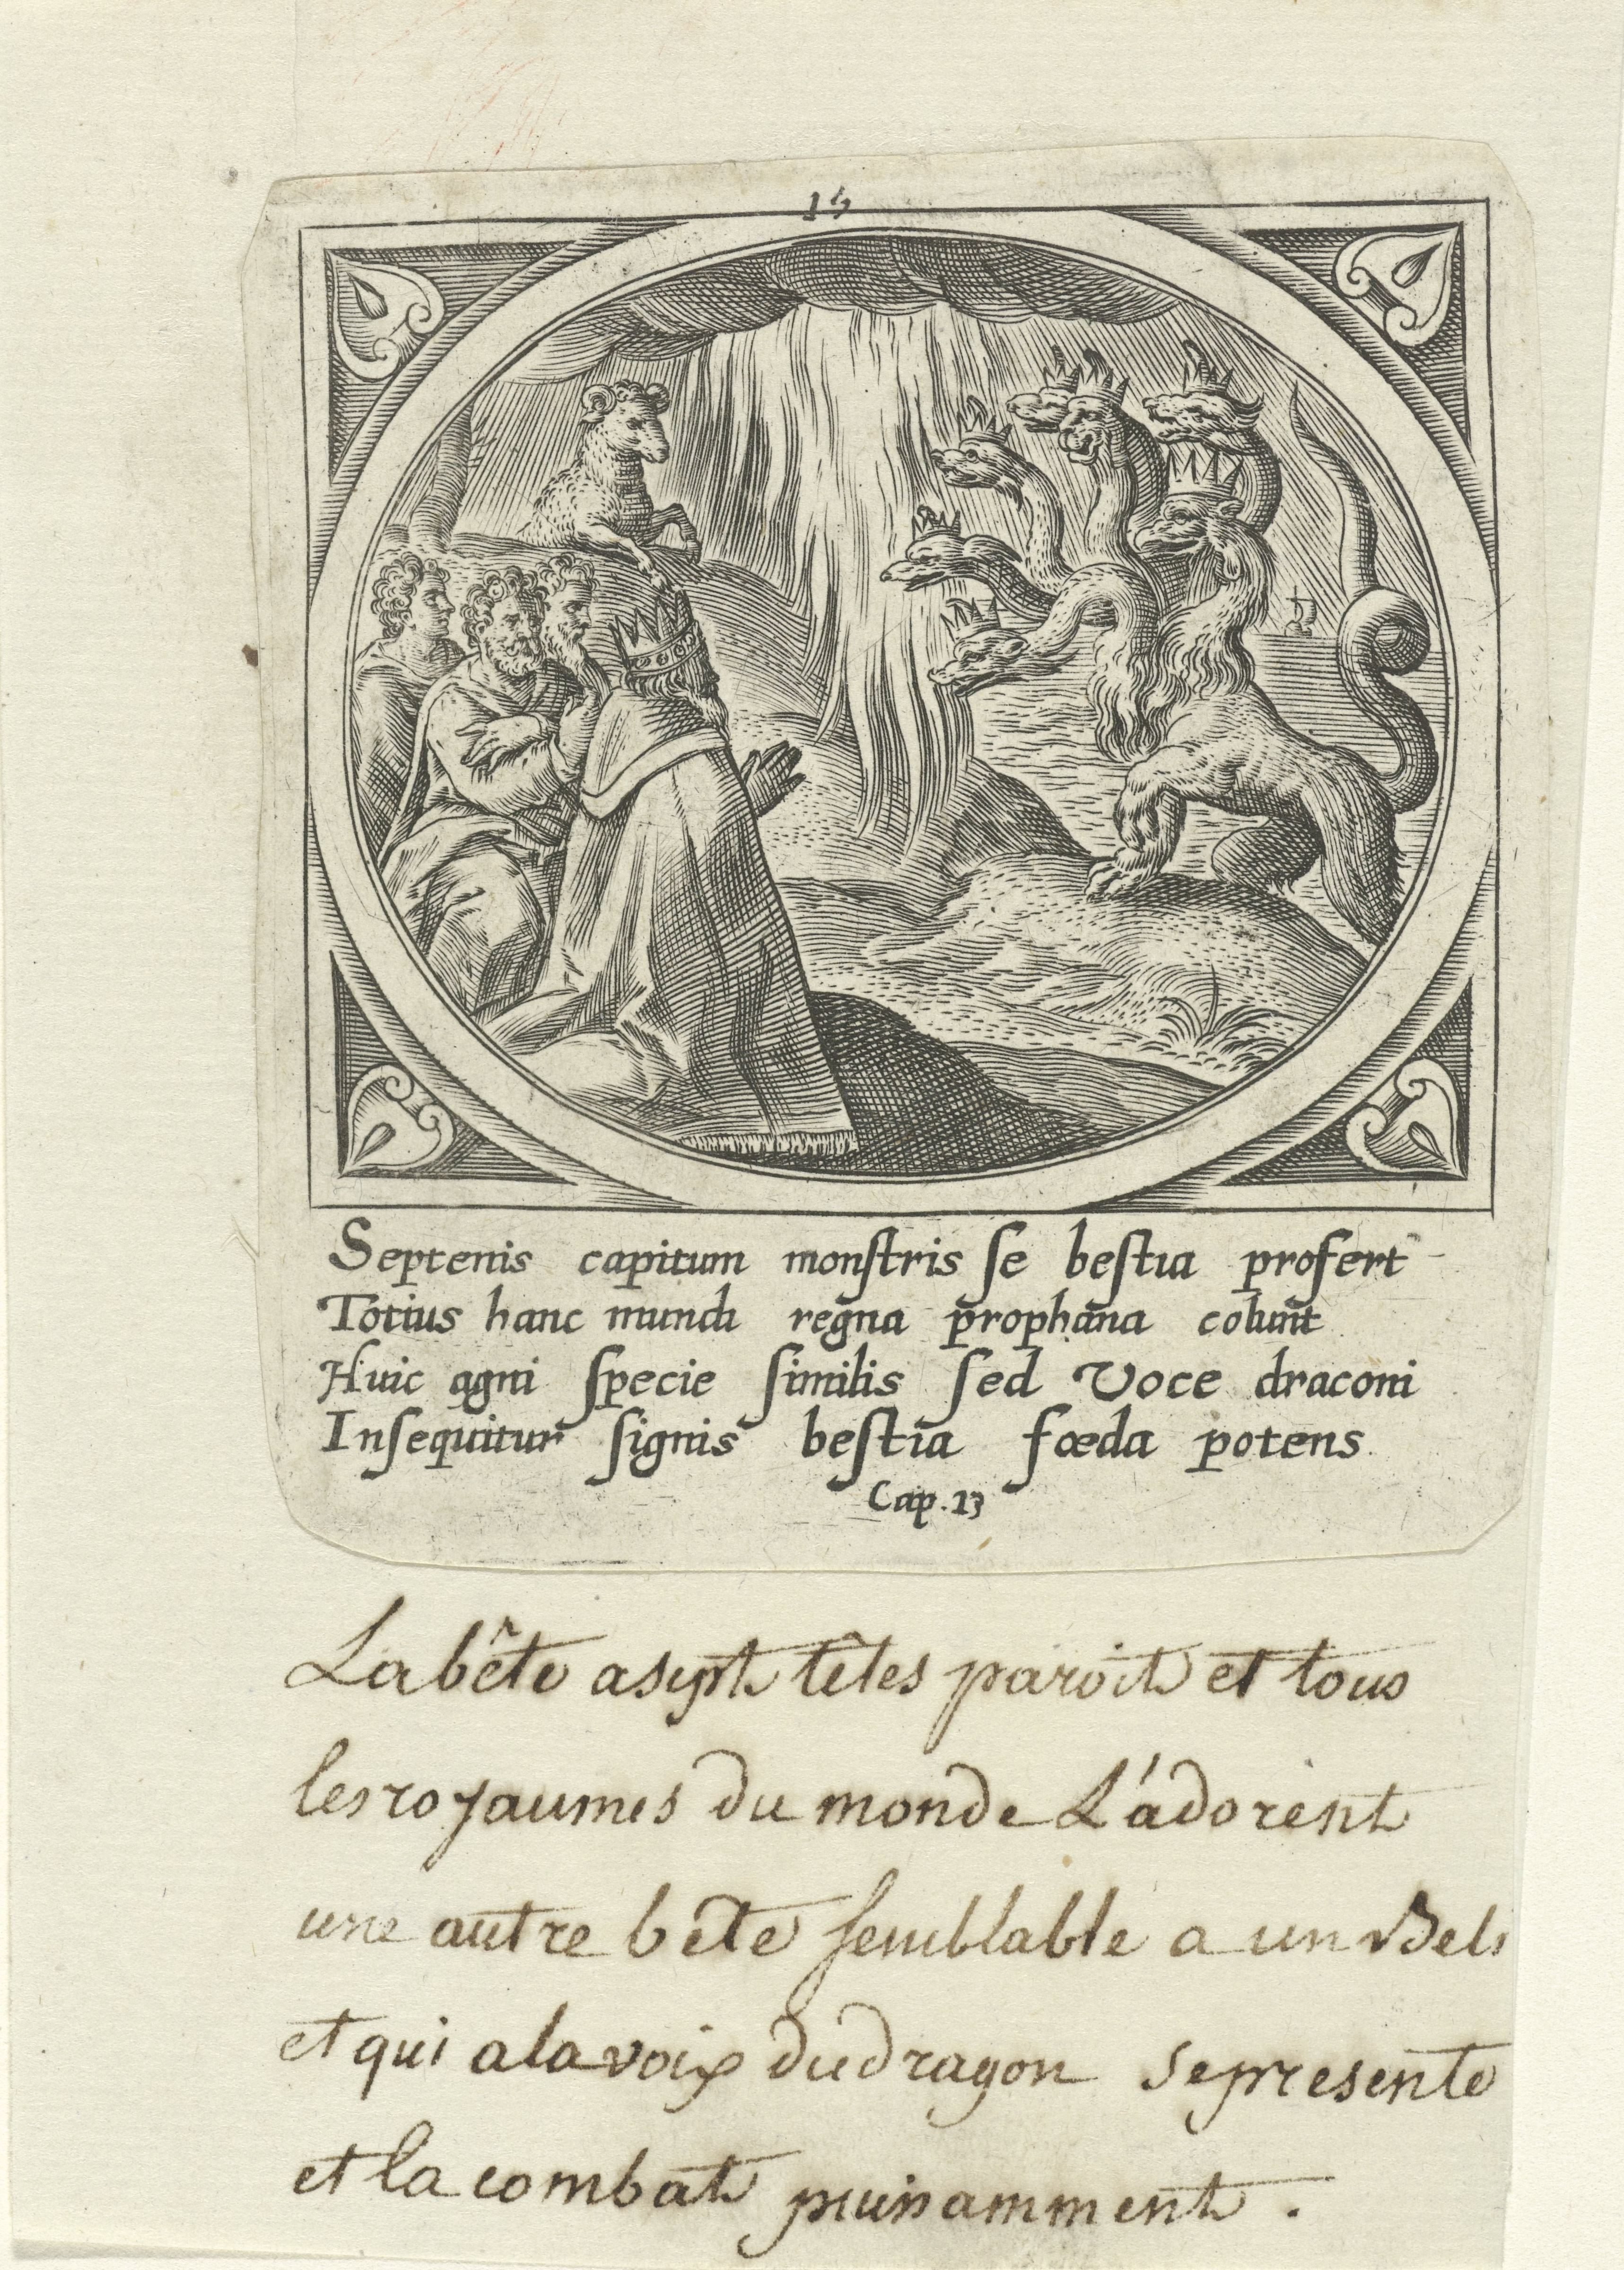 15
Septenis capitum monſtris ſe beſtia profert
Totius hanc mundi regna prophana colunt
Huic agni ſpecie ſimilis ſed Voce draconi
Inſequitur ſignis beſtia fœda potens.
Cap. 13
La bête a sept têtes paroit et tous
les royaumes du monde L'adorent
une autre bête ſemblable a un Beli
et qui a la voix du dragon se presente
et la combat puissamment.